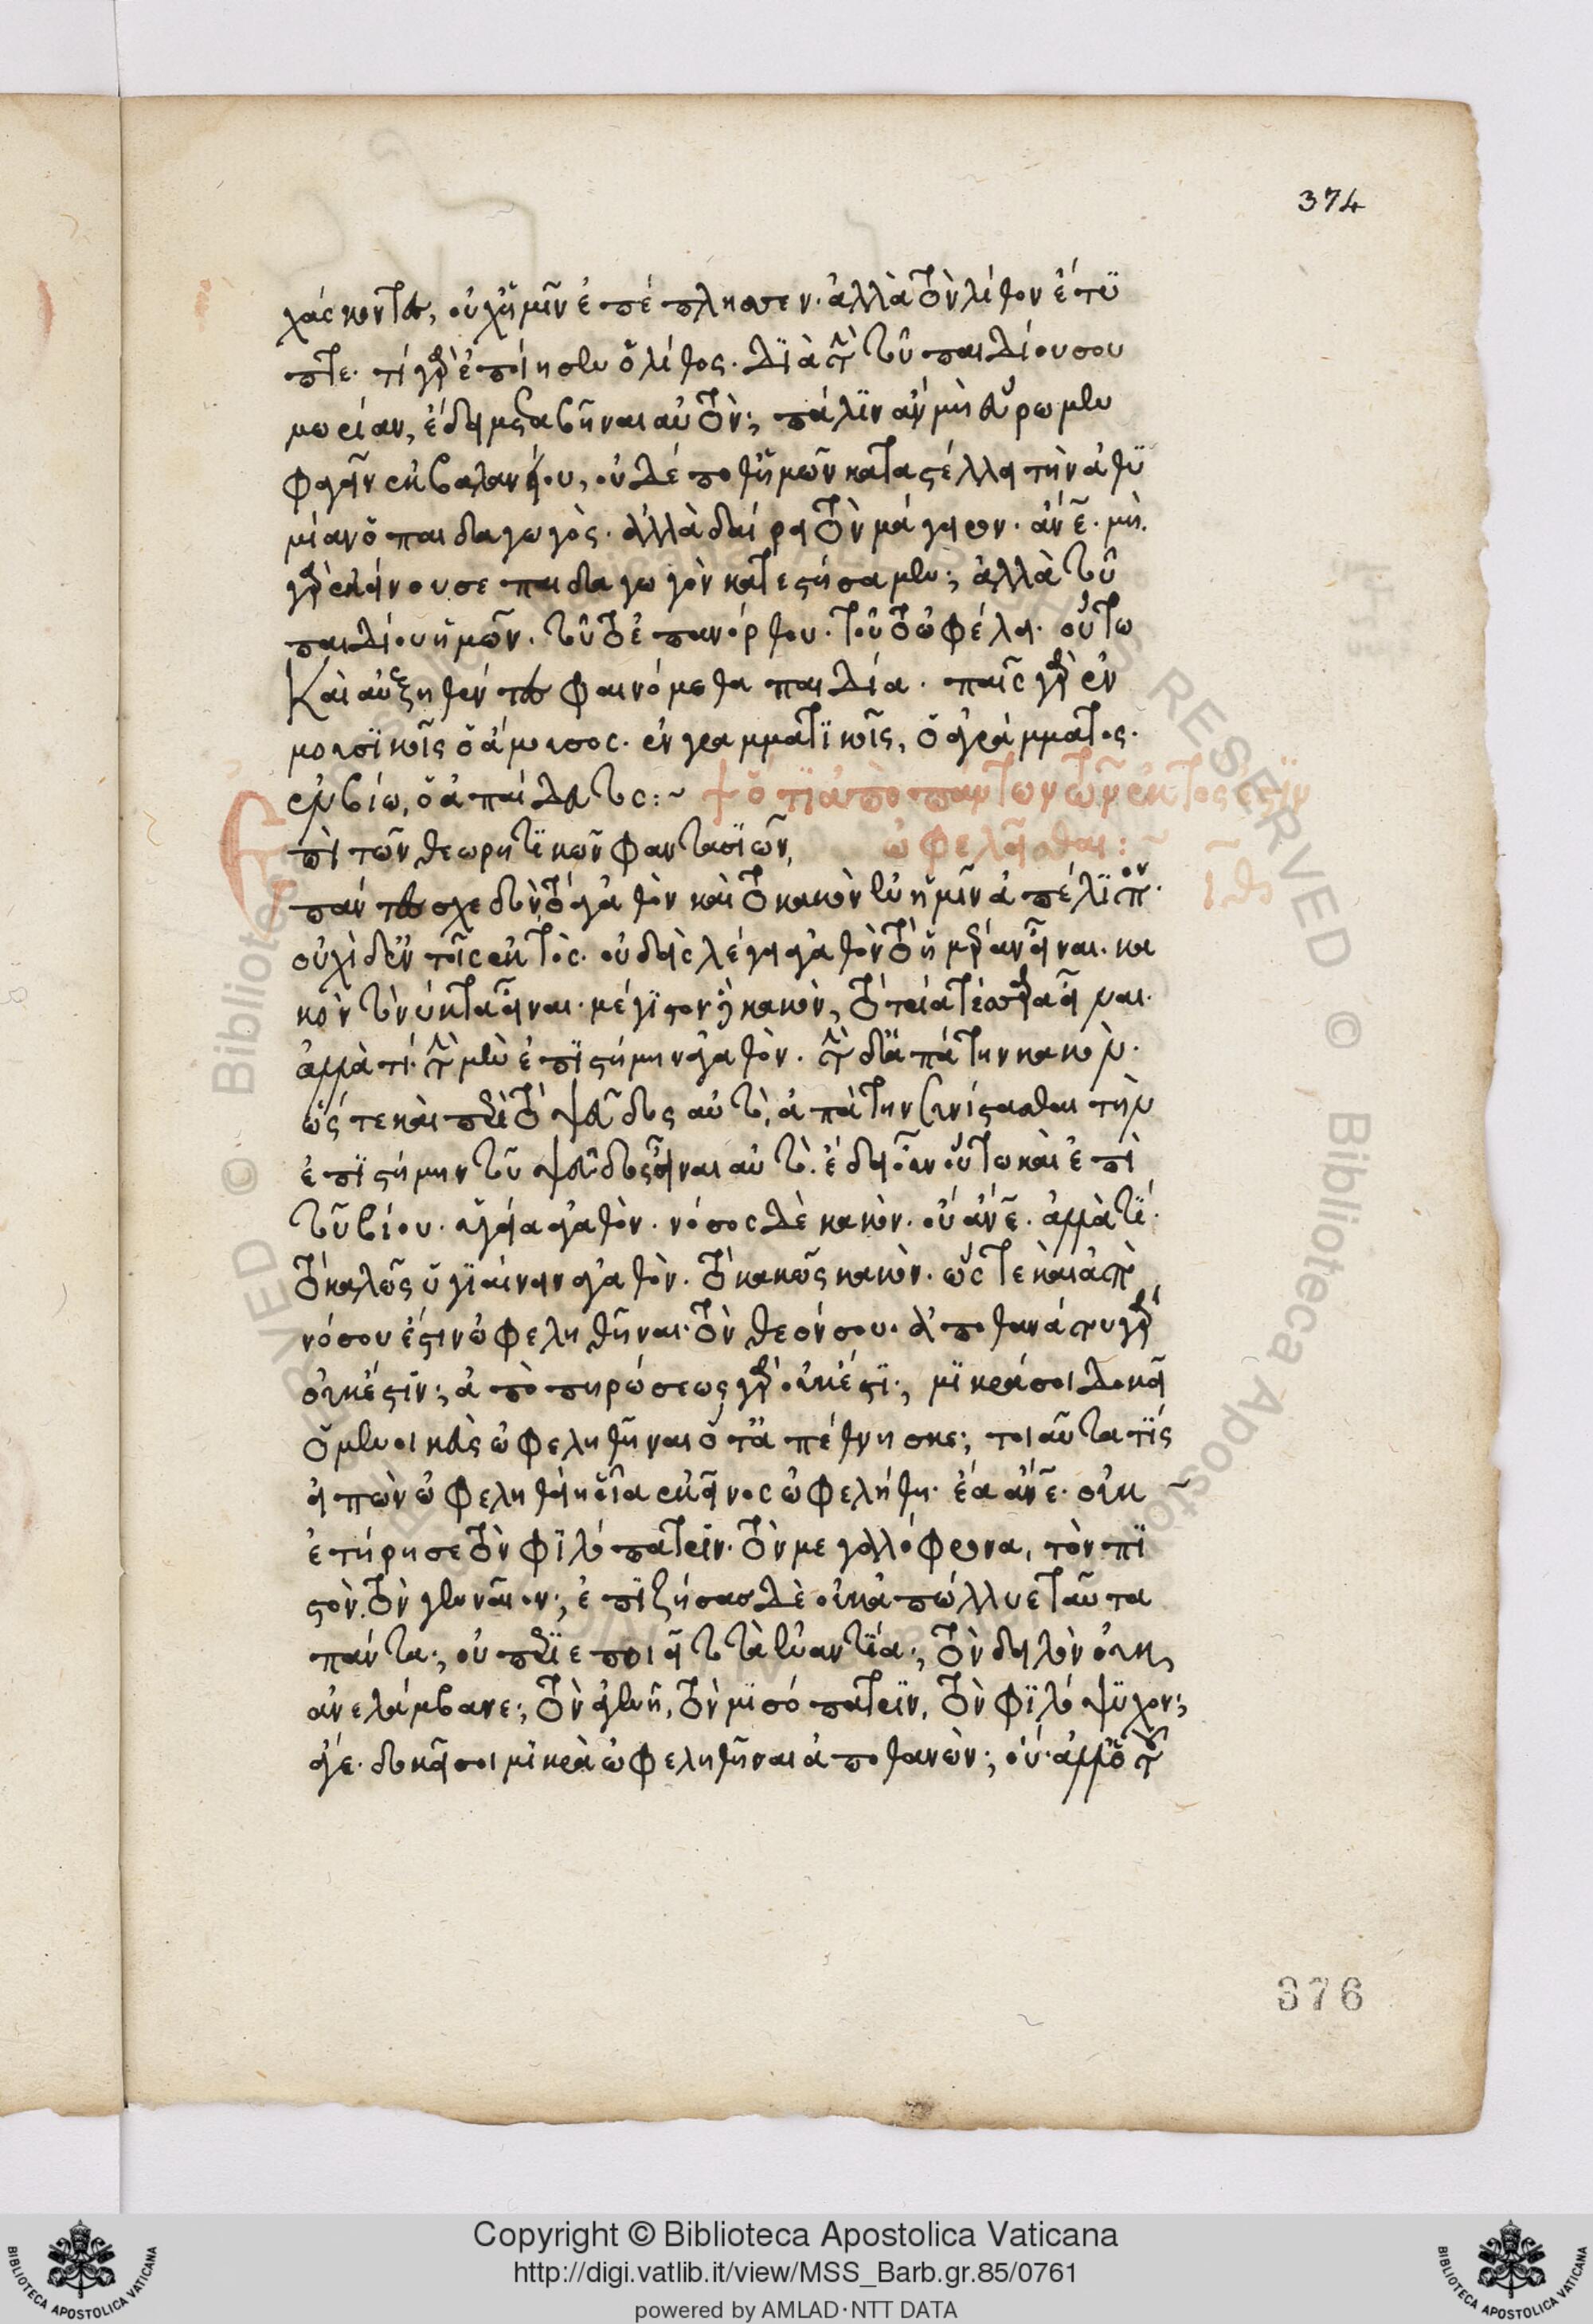 374
χάσκοντες, οὐχ ἡμῖν ἐπέπλησσεν· ἀλλὰ τὸν λίθον ἔτυ
πτε· τί γὰρ ἐποίησεν ὁ λίθος· διὰ τὴν τοῦ παιδίου σου
μωρίαν, ἔδει μεταβῆναι αὐτὸν; πάλιν ἂν μὴ εὕρωμεν
φαγεῖν ἐκ βαλανείου, οὐδέποθ' ἡμῶν καταστέλλει τὴν ἀθυ
μίαν ὁ παιδαγωγὸς· ἀλλὰ δαίρει τὸν μάγειρον· ἄνε· μὴ
γὰρ ἐκείνου σε παιδαγωγὸν κατεστήσαμεν; ἀλλὰ τοῦ
παιδίου ἡμῶν· τοῦτο ἐπανόρθου· τοῦτο ὠφέλει· οὕτω
Καὶ αὐξηθέντες φαινόμεθα παιδία· παῖς γὰρ ἐν
μουσικοῖς ὁ ἄμουσος· ἐν γραμματικοῖς, ὁ ἀγράμματος·
ἐν βίῳ, ὁ ἀπαίδευτος:~ ὅτι ἀπὸ πάντων τῶν ἐκτὸς ἔστιν
ὠφελεῖσθαι:~
Επὶ τῶν θεωρητικῶν φαντασιῶν,
ιθ
πάντες σχεδὸν τὸ ἀγαθὸν καὶ τὸ κακὸν ἐν ἡμῖν ἀπέλιπον·
οὐχὶ δ' ἐν τοῖς ἐκτὸς· οὐδεὶς λέγει ἀγαθὸν τὸ ἡμέραν εἶναι· κα
κὸν τὸ νύκτα εἶναι· μέγιστον δὲ κακὸν, τὸ τρία τέσσαρα εἶναι·
ἀλλὰ τί· τὴν μὲν ἐπιστήμην ἀγαθὸν· τὴν δ' ἀπάτην κακὸν·
ὥστε καὶ περὶ τὸ ψεῦδος αὐτὸ, ἀπάτην συνίστασθαι τὴν
ἐπιστήμην τοῦ ψεῦδος εἶναι αὐτὸ· ἔδει οὖν οὕτω καὶ ἐπὶ
τοῦ βίου· ὑγεία ἀγαθὸν· νόσος δὲ κακὸν· οὔ ἄνε· ἀλλὰ τί·
τὸ καλῶς ὑγιαίνειν ἀγαθὸν· τὸ κακῶς κακὸν· ὥστε καὶ ἀπὸ
νόσου ἔστιν ὠφεληθῆναι· τὸν θεόν σου· ἀπὸ θανάτου γὰρ
οὐκ ἔστιν; ἀπὸ πηρώσεως γὰρ οὐκ ἔστι; μικρά σοι δοκεῖ
ὁ μενοικεὺς ὠφεληθῆναι ὅτ' ἀπέθνησκε; τοιαῦτα τίς
εἰπὼν ὠφεληθείη οἷα ἐκεῖνος ὠφελήθη· ἔα ἄνε· οὐκ
ἐτήρησε τὸν φιλόπατριν· τὸν μεγαλόφρονα, τὸν πι
στὸν, τὸν γενναῖον; ἐπιζήσας δὲ οὐκ ἀπώλλυε ταῦτα
πάντα; οὐ περιεποιεῖτο τὰ ἐναντία; τὸν δειλὸν οὐκ
ἀνελάμβανε; τὸν ἀγενῆ, τὸν μισόπατριν, τὸν φιλόψυχον;
ἄγε· δοκεῖ σοι μικρὰ ὠφεληθῆναι ἀποθανὼν; οὔ· ἀλλ' ὁ τοῦ
376
Copyright © Biblioteca Apostolica Vaticana
http://digi.vatlib.it/view/MSS_Barb.gr.85/0761
powered by AMLAD·NTT DATA
BIBLIOTECA APOSTOLICA VATICANA
BIBLIOTECA APOSTOLICA VATICANA